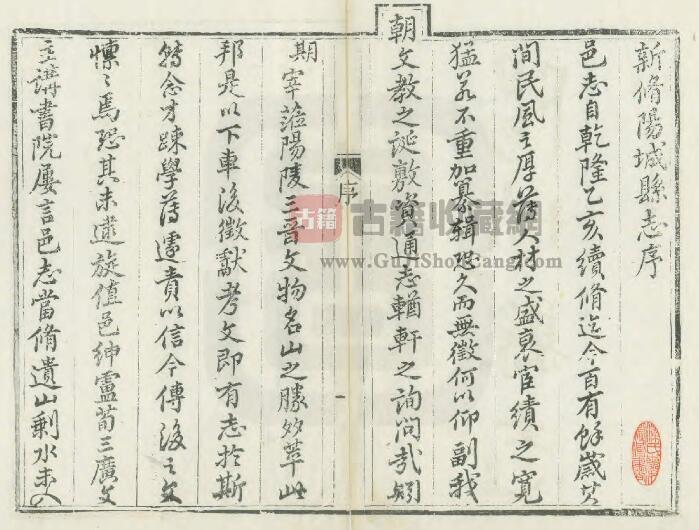 新脩陽城縣志序
邑志自乾隆乙亥續脩迄今百有餘歲其
間民風之厚薄人材之盛衰宦績之寬
猛若不重加纂輯恐久而無徵何以仰副我
朝文教之誕敷資通志輶軒之詢問哉矧
期宰蒞陽陵三晉文物名山之勝多萃此
序
一
邦是以下車後徵獻考文即有志於斯
轉念才踈學薄遽責以信今傳後之文
懍〻焉恐其未逮旋值邑紳盧荀三廣文
主講書院屢言邑志當脩遺山剩水未入
古籍
古籍收藏網
www.GuJiShouCang.com